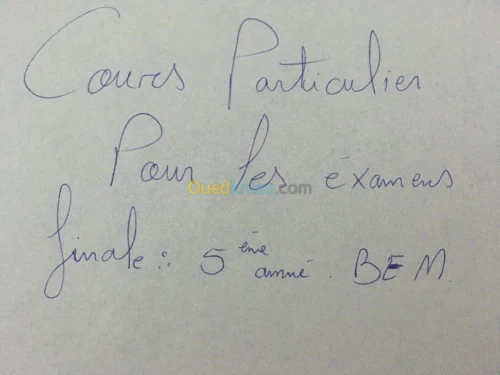 Cours Particulier
Pour les éxamens
OuedKniss.com
finale : 5 ème anné. BEM